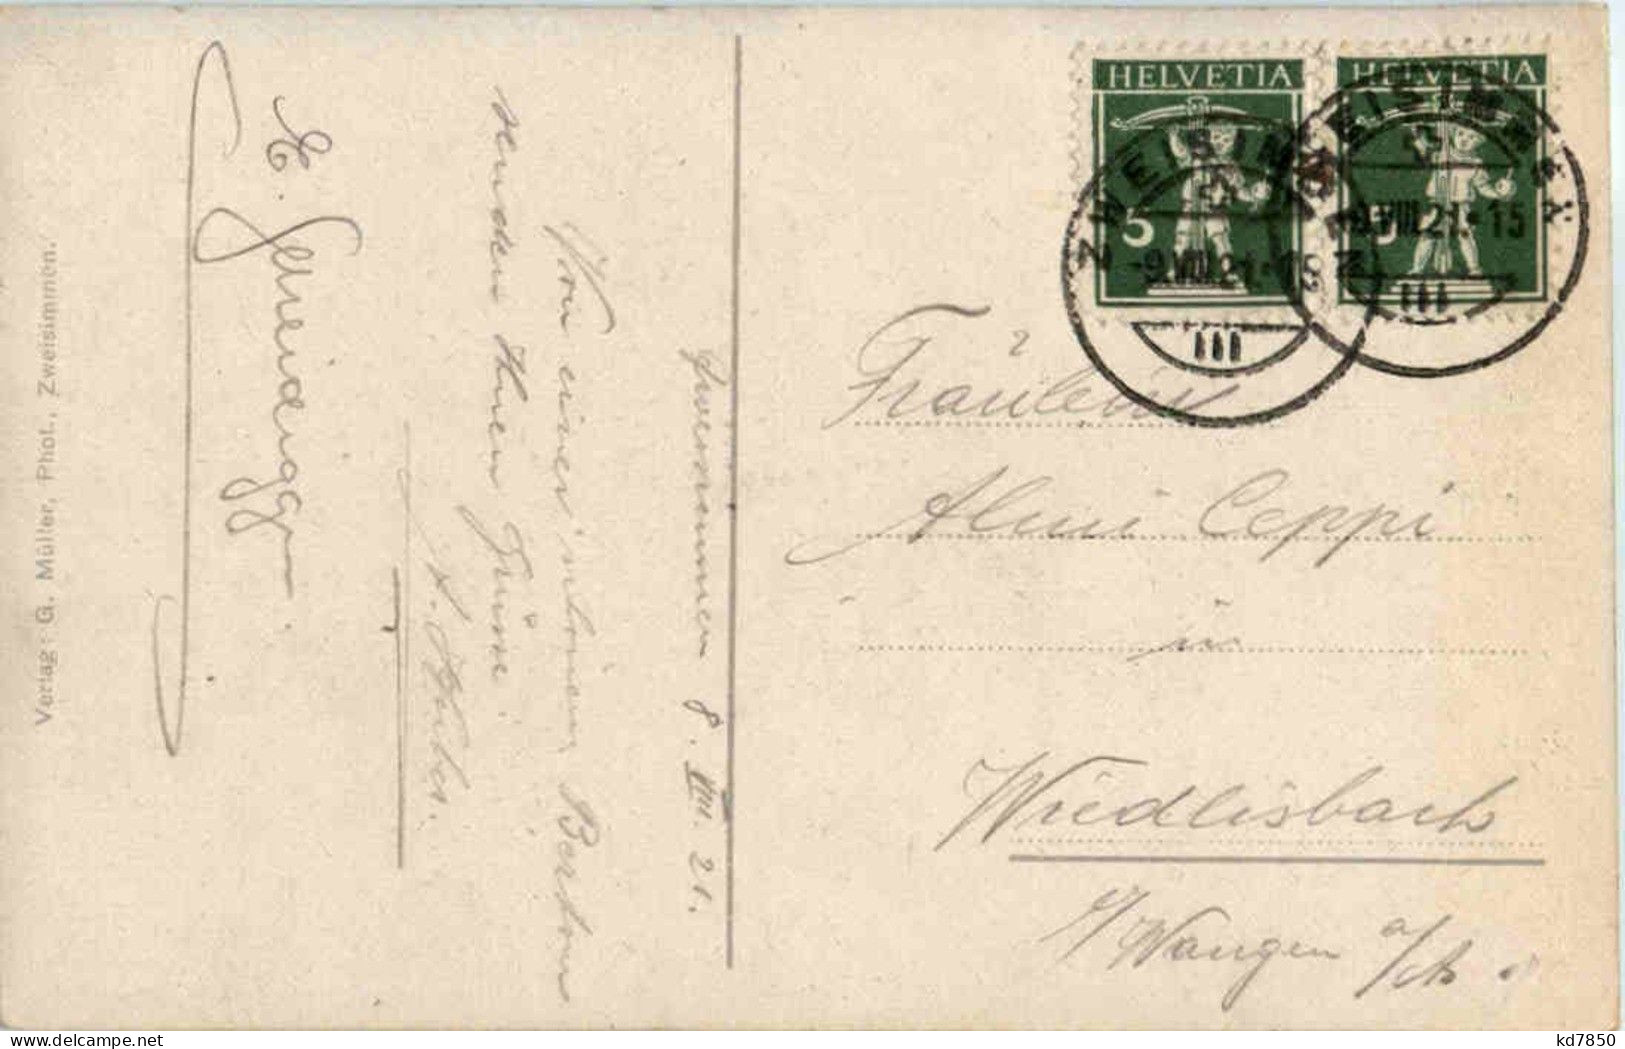 HELVETIA
HELVETIA
5
5
ZWEISIMMEN
-9.VIII.21.-
ZWEISIMMEN
-9.VIII.21.-15
Fräulein
Ceppi
in
Wiedlisbach
b/ Wangen a/A.
Zweisimmen 8. VIII. 21.
Von einer schönen
senden Ihnen Grüsse.
E.
Verlag: G. Müller, Phot., Zweisimmen.
kd7850